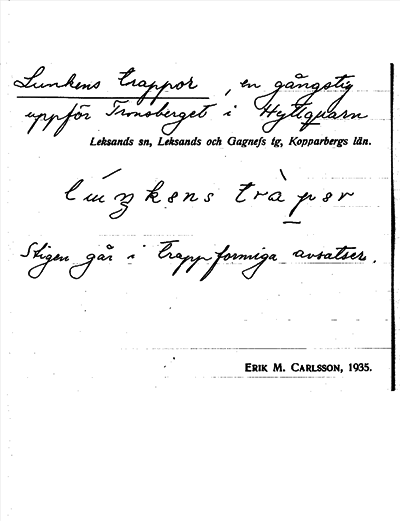 Lunkens trappor, en gångstig
uppför Tronsberget i Hyttquarn
Leksands sn, Leksands och Gagnefs tg, Kopparbergs län.
lúŋkens tràper
Stigen går i trappformiga avsatser.
ERIK M. CARLSSON, 1935.